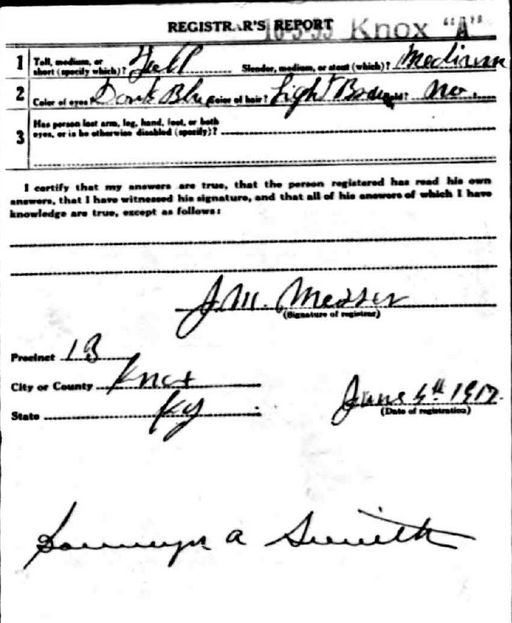 REGISTRAR'S REPORT Knox "A"
1 Tall, medium, or short (specify which)? Tall Slender, medium, or stout (which)? Medium
2 Color of eyes? Dark Blue Color of hair? Light Brown Bald? no
3 Has person lost arm, leg, hand, foot, or both eyes, or is he otherwise disabled (specify)?
I certify that my answers are true, that the person registered has read his own
answers, that I have witnessed his signature, and that all of his answers of which I have
knowledge are true, except as follows:
J. M. Messer
(Signature of registrar)
Precinct 13
City or County Knox
State Ky
June 5th 1917.
(Date of registration)
A Smith